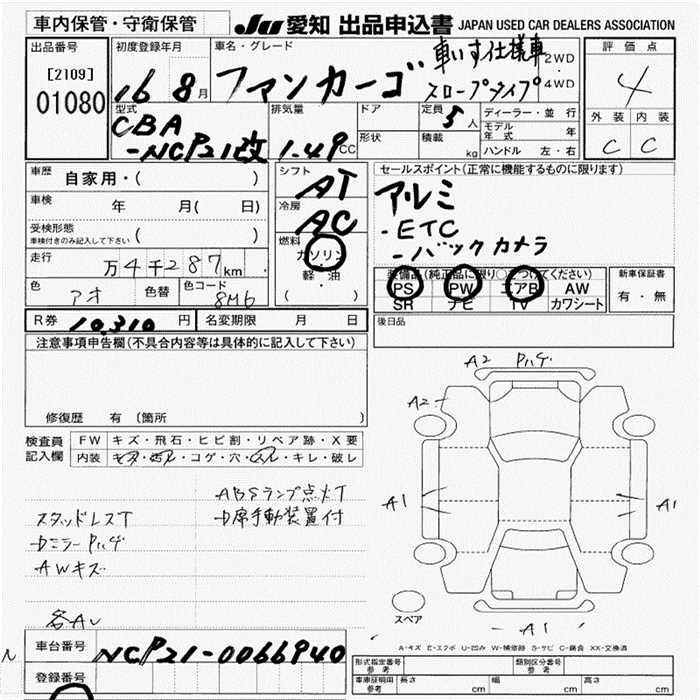 車内保管・守衛保管
JU 愛知 出品申込書 JAPAN USED CAR DEALERS ASSOCIATION
出品番号
[2109]
01080
初度登録年月
16 8月
車名・グレード
ファンカーゴ
車いす仕様車
スロープタイプ
2WD
4WD
評価点
4
外装 内装
C C
型式
CBA
-NCP21改
排気量
1.49CC
ドア
形状
定員
5人
積載
kg
ディーラー・並行
モデル年式 年
ハンドル 左・右
車歴
自家用・( )
車検
年 月( 日)
受検形態
車検付きのみ記入して下さい ( )
走行
万4千287km
色
アオ
色替
色コード
8M6
シフト
AT
冷房
AC
燃料
ガソリン
軽・油
( )
セールスポイント(正常に機能するものに限ります)
アルミ
・ETC
-バックカメラ
装備品(純正品に限り○をつけてください)
PS PW エアB AW
SR ナビ TV カワシート
新車保証書
有・無
R券 10,310円
名変期限 月 日
後日品
注意事項申告欄(不具合内容等は具体的に記入して下さい)
修復歴 有 (箇所 )
検査員
記入欄
FW キズ・飛石・ヒビ割・リペア跡・X要
内装 キズ・汚れ・コゲ・穴・スレ・キレ・破レ
ABSランプ点灯
スタッドレスT
D席手動装置付
DミラーPハゲ
AWキズ
各AU
A2 Pハゲ
A2
A1
A1
A1
スペア
車台番号 NCP21-0066940
登録番号
A-キズ E-エクボ U-凹み W-補修跡 S-サビ C-腐食 XX-交換済
形式指定番号
参考
類別区分番号
参考
車庫証明用
参考
長さ cm
幅 cm
高さ cm